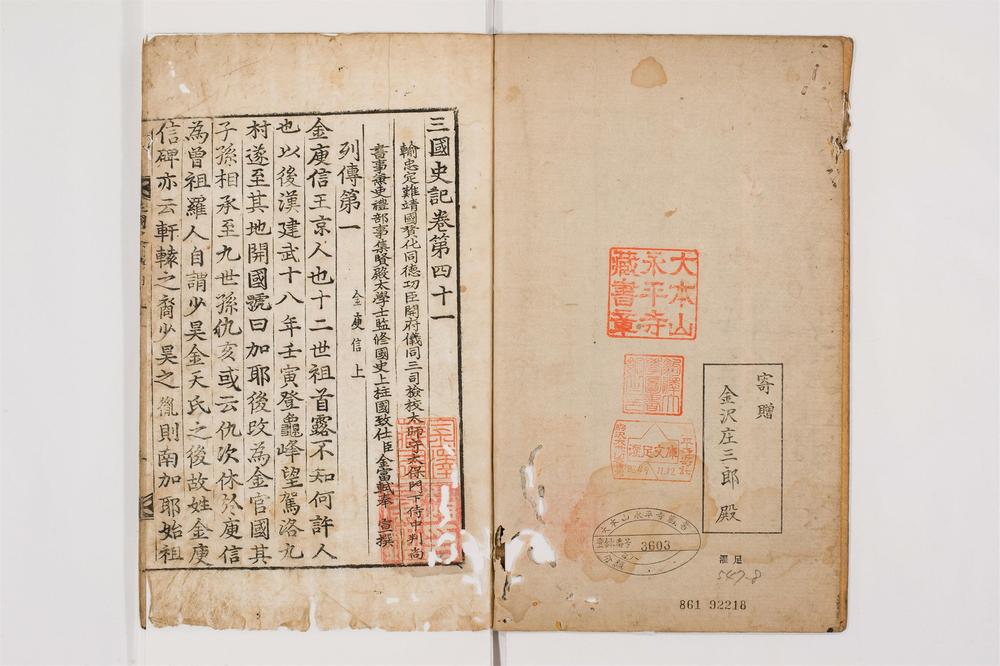 大本山
永平寺
藏書章
寄贈
金沢庄三郎 殿
濯足文庫
登録番号 3603
濯足
547-8
861 92218
三國史記卷第四十一
輸忠定難靖國贊化同德功臣開府儀同三司檢校太師守太保門下侍中判尚
書事兼吏禮部事集賢殿太學士監修國史上柱國致仕臣金富軾奉 宣撰
列傳第一
金庾信上
金庾信王京人也十二世祖首露不知何許人
也以後漢建武十八年壬寅登龜峰望駕洛九
村遂至其地開國號曰加耶後改為金官國其
子孫相承至九世孫仇亥或云仇次休於庾信
為曾祖羅人自謂少昊金天氏之後故姓金庾
信碑亦云軒轅之裔少昊之胤則南加耶始祖